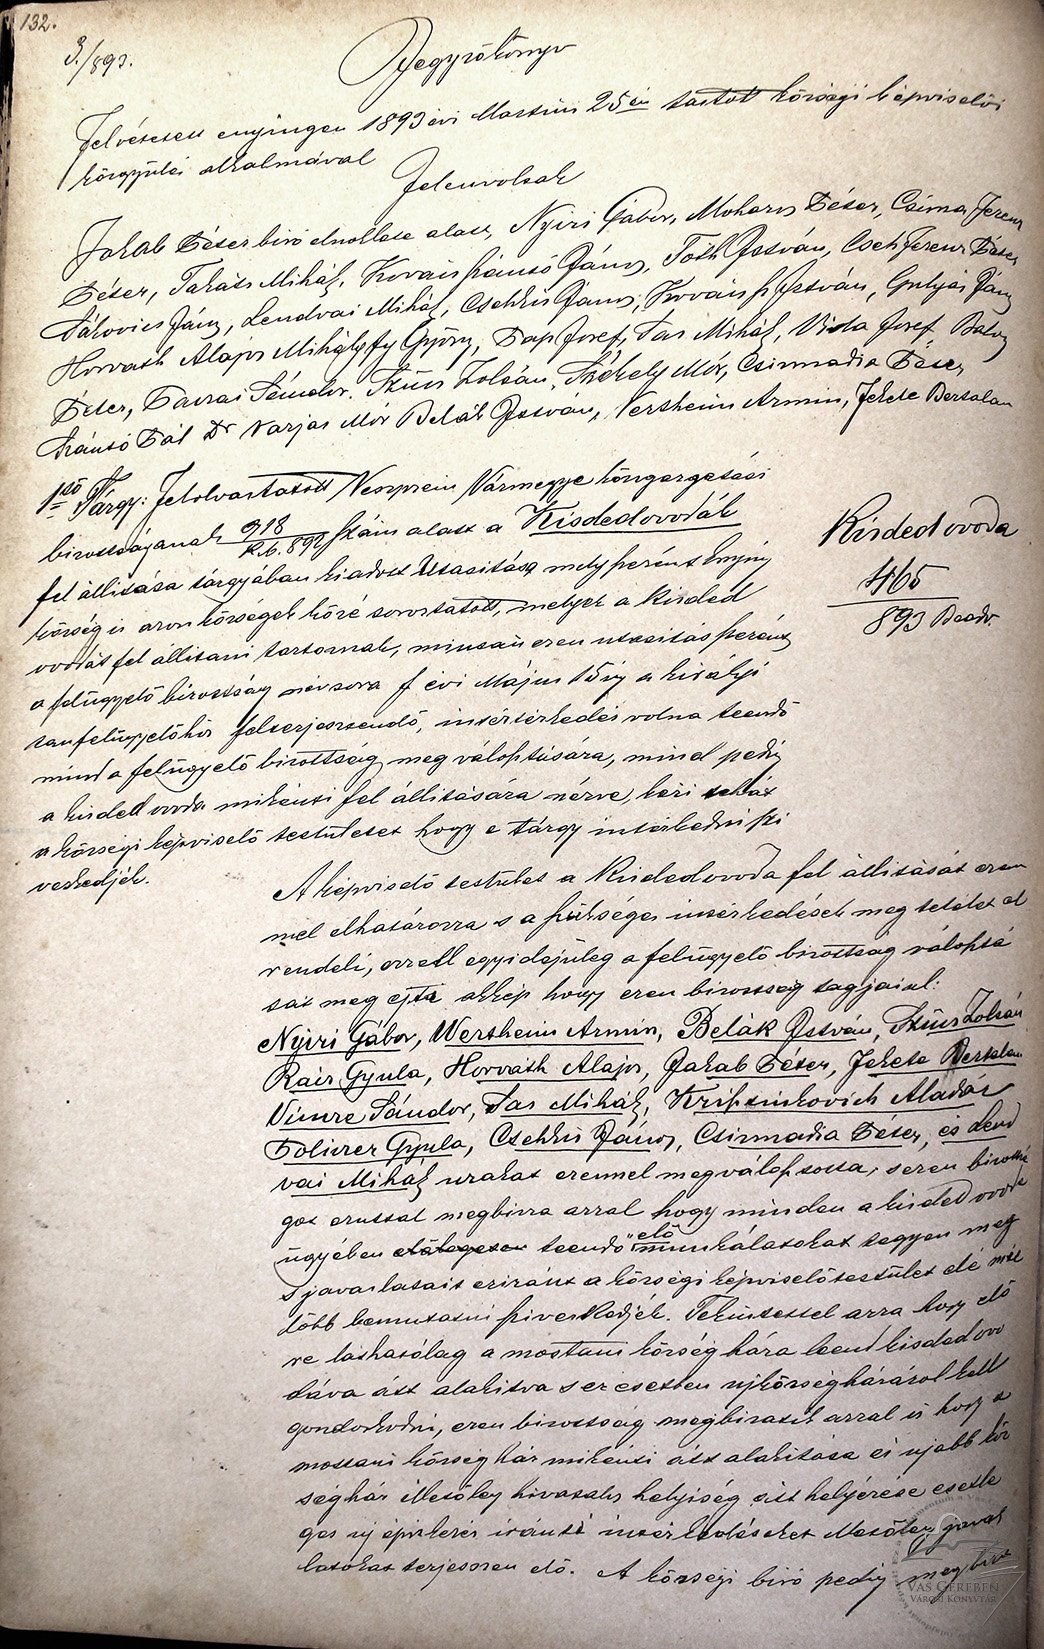 132.
3./893.
Jegyzőkönyv
Felvétetett enyingen 1893 évi Martius 25én tartott községi képviselői
közgyülés alkalmával
Jelenvoltak
Jakab Péter biró elnöklete alatt, Nyiri Gábor, Moharos Péter, Csima Ferenc
Péter, Takáts Mihály, Kovács Szántó János, Tóth István, Cseh Ferenc Péter
Pálovics János, Lendvai Mihály, Csekkis János, Kovács P István, Gulyás János
Horvath Alajos Mihályfy György, Pap Josef, Tas Mihály, Vida Josef Balog
Péter, Sándor. Szüts Zoltán, Székely Mór, Csizmadia Péter
Szántó Pál Dr Varjas Mór Belák István, Vertheim Armin, Fekete Bertalan
1ső Tárgy: Felolvastatott Veszprém Vármegye közigazgatási
bizottságának 918/K.b.892 szám alatt a Kisdedovodák
fel állitása tárgyában kiadott Utasitása mely szerént Enying
község is azon községek közé soroztatott, melyek a kisded
ovodát fel állitani tartoznak, miután ezen utasitás szerént
a felügyelő bizottság névsora f évi Május 15ig a királyi
tanfelügyelőhöz felterjesztendő, intézkedés volna teendő
mind a felügyelő bizottság meg választására, mind pedig
a kisded ovoda mikénti fel állitására nézve, kéri tehát
a községi képviselő testületet hogy e tárgy intézkedni szi
veskedjék.
Kisdedovoda
465
893 Beadv.
A képviselő testület a Kisdedovoda fel állitását ezen
nel elhatározza s a szükséges intézkedések meg tételét el
rendeli, ezzel egyidejüleg a felügyelő bizottság választá
sát meg ejté akkép hogy ezen bizottság tagjaiul:
Nyiri Gábor, Wertheim Armin, Belák István, Szüts Zoltán
Raics Gyula, Horváth Alajos, Jakab Péter, Fekete Bertalan
Vimre Sándor, Tas Mihály, Krisztinkovich Aladár
Politzer Gyula, Csekkis János, Csizmadia Péter, és Lend
vai Mihály urakat ezennel megválasztotta, s ezen bizottsá
got azuttal megbizza azzal hogy minden a kisded ovoda
ügyében teendő elő munkálatokat tegyen meg
s javaslatait eziránt a községi képviselőtestület elé mie
lőbb bemutatni sziveskedjék. Tekintettel arra hogy elő
re láthatólag a mostani község háza leend kisded ovo
dává átt alakitva s ez esetben uj községházáról kell
gondoskodni, ezen bizottság megbizatik azzal is hogy a
mostani község ház mikénti átt alakitása és ujabb köz
ségház illetőleg hivatalos helyiség átt helyezése esetle
ges uj épitkezés iránti intézkedéseket illetőleg javas
latokat terjesszen elő. A községi biró pedig megbiza
VAS GEREBEN
VÁROSI KÖNYVTÁR